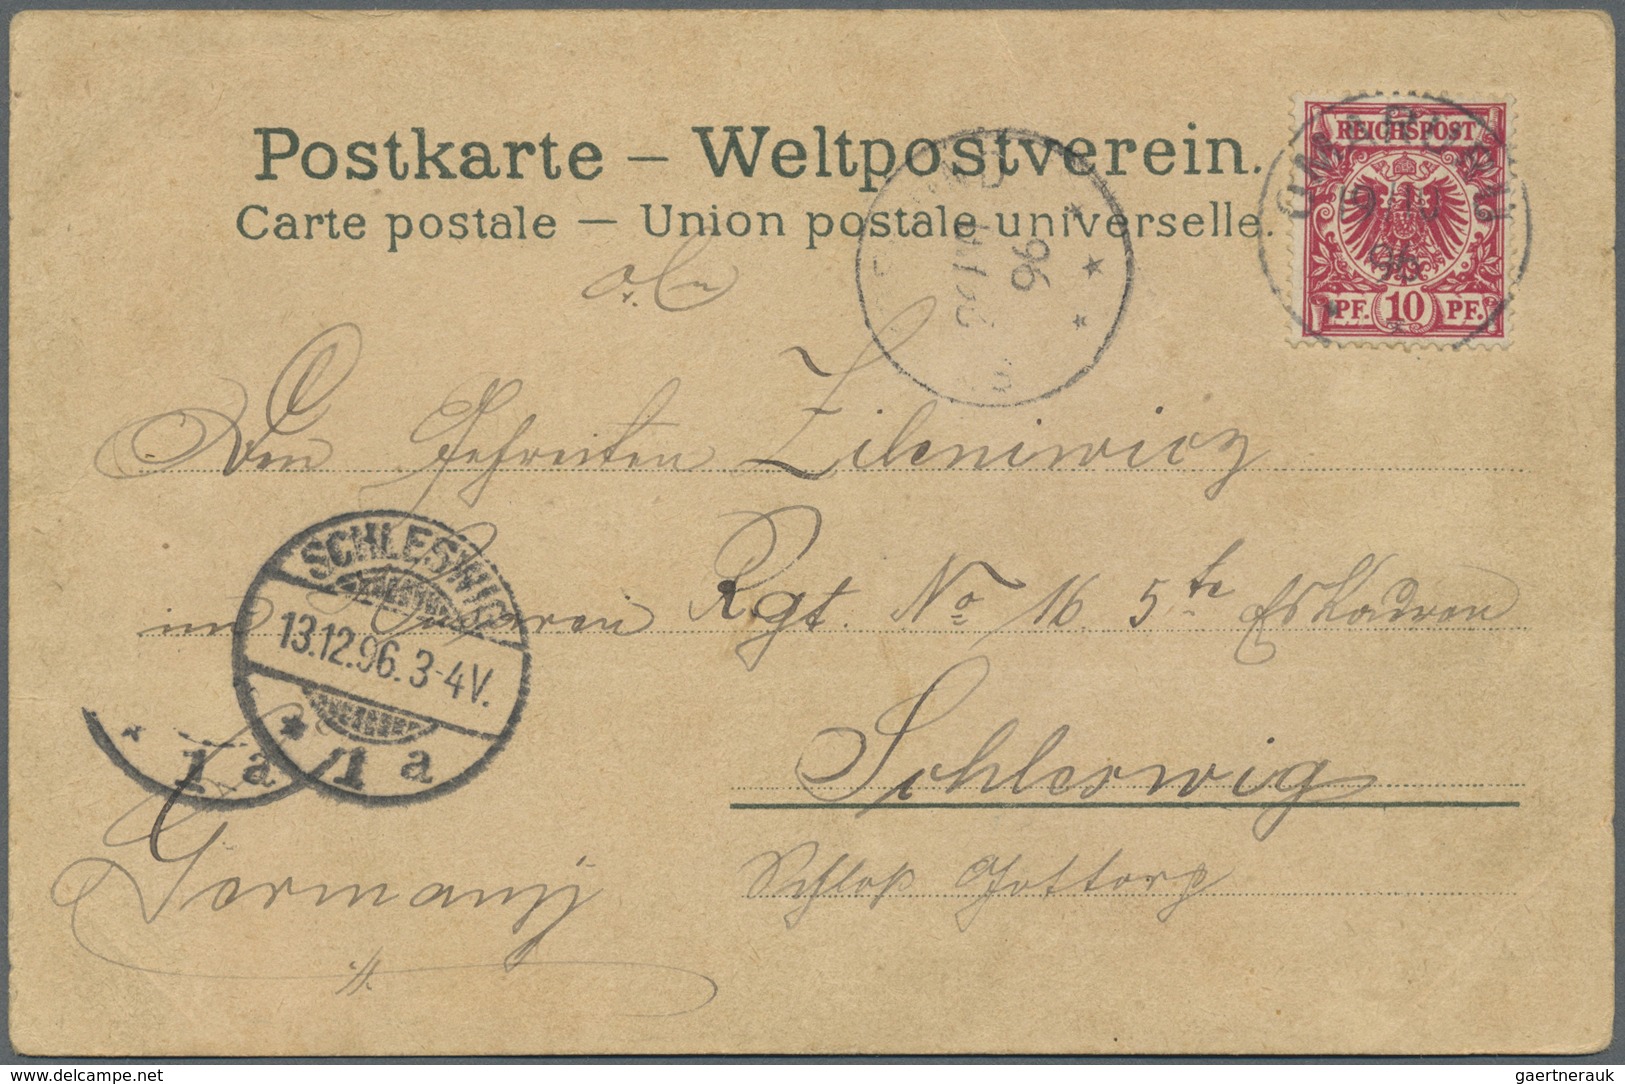 Postkarte – Weltpostverein.
Carte postale – Union postale universelle.
REICHSPOST
PF. 10 PF.
OMARURU
9/10
96
96
Den Gefreiten Zileniwicz
im Husaren Rgt. No 16 5te Eskadron
Schleswig
Schloß Gottorp
Germany
SCHLESWIG
13.12.96. 3-4V.
* 1 a
* 1 a
www.delcampe.net
gaertnerauk